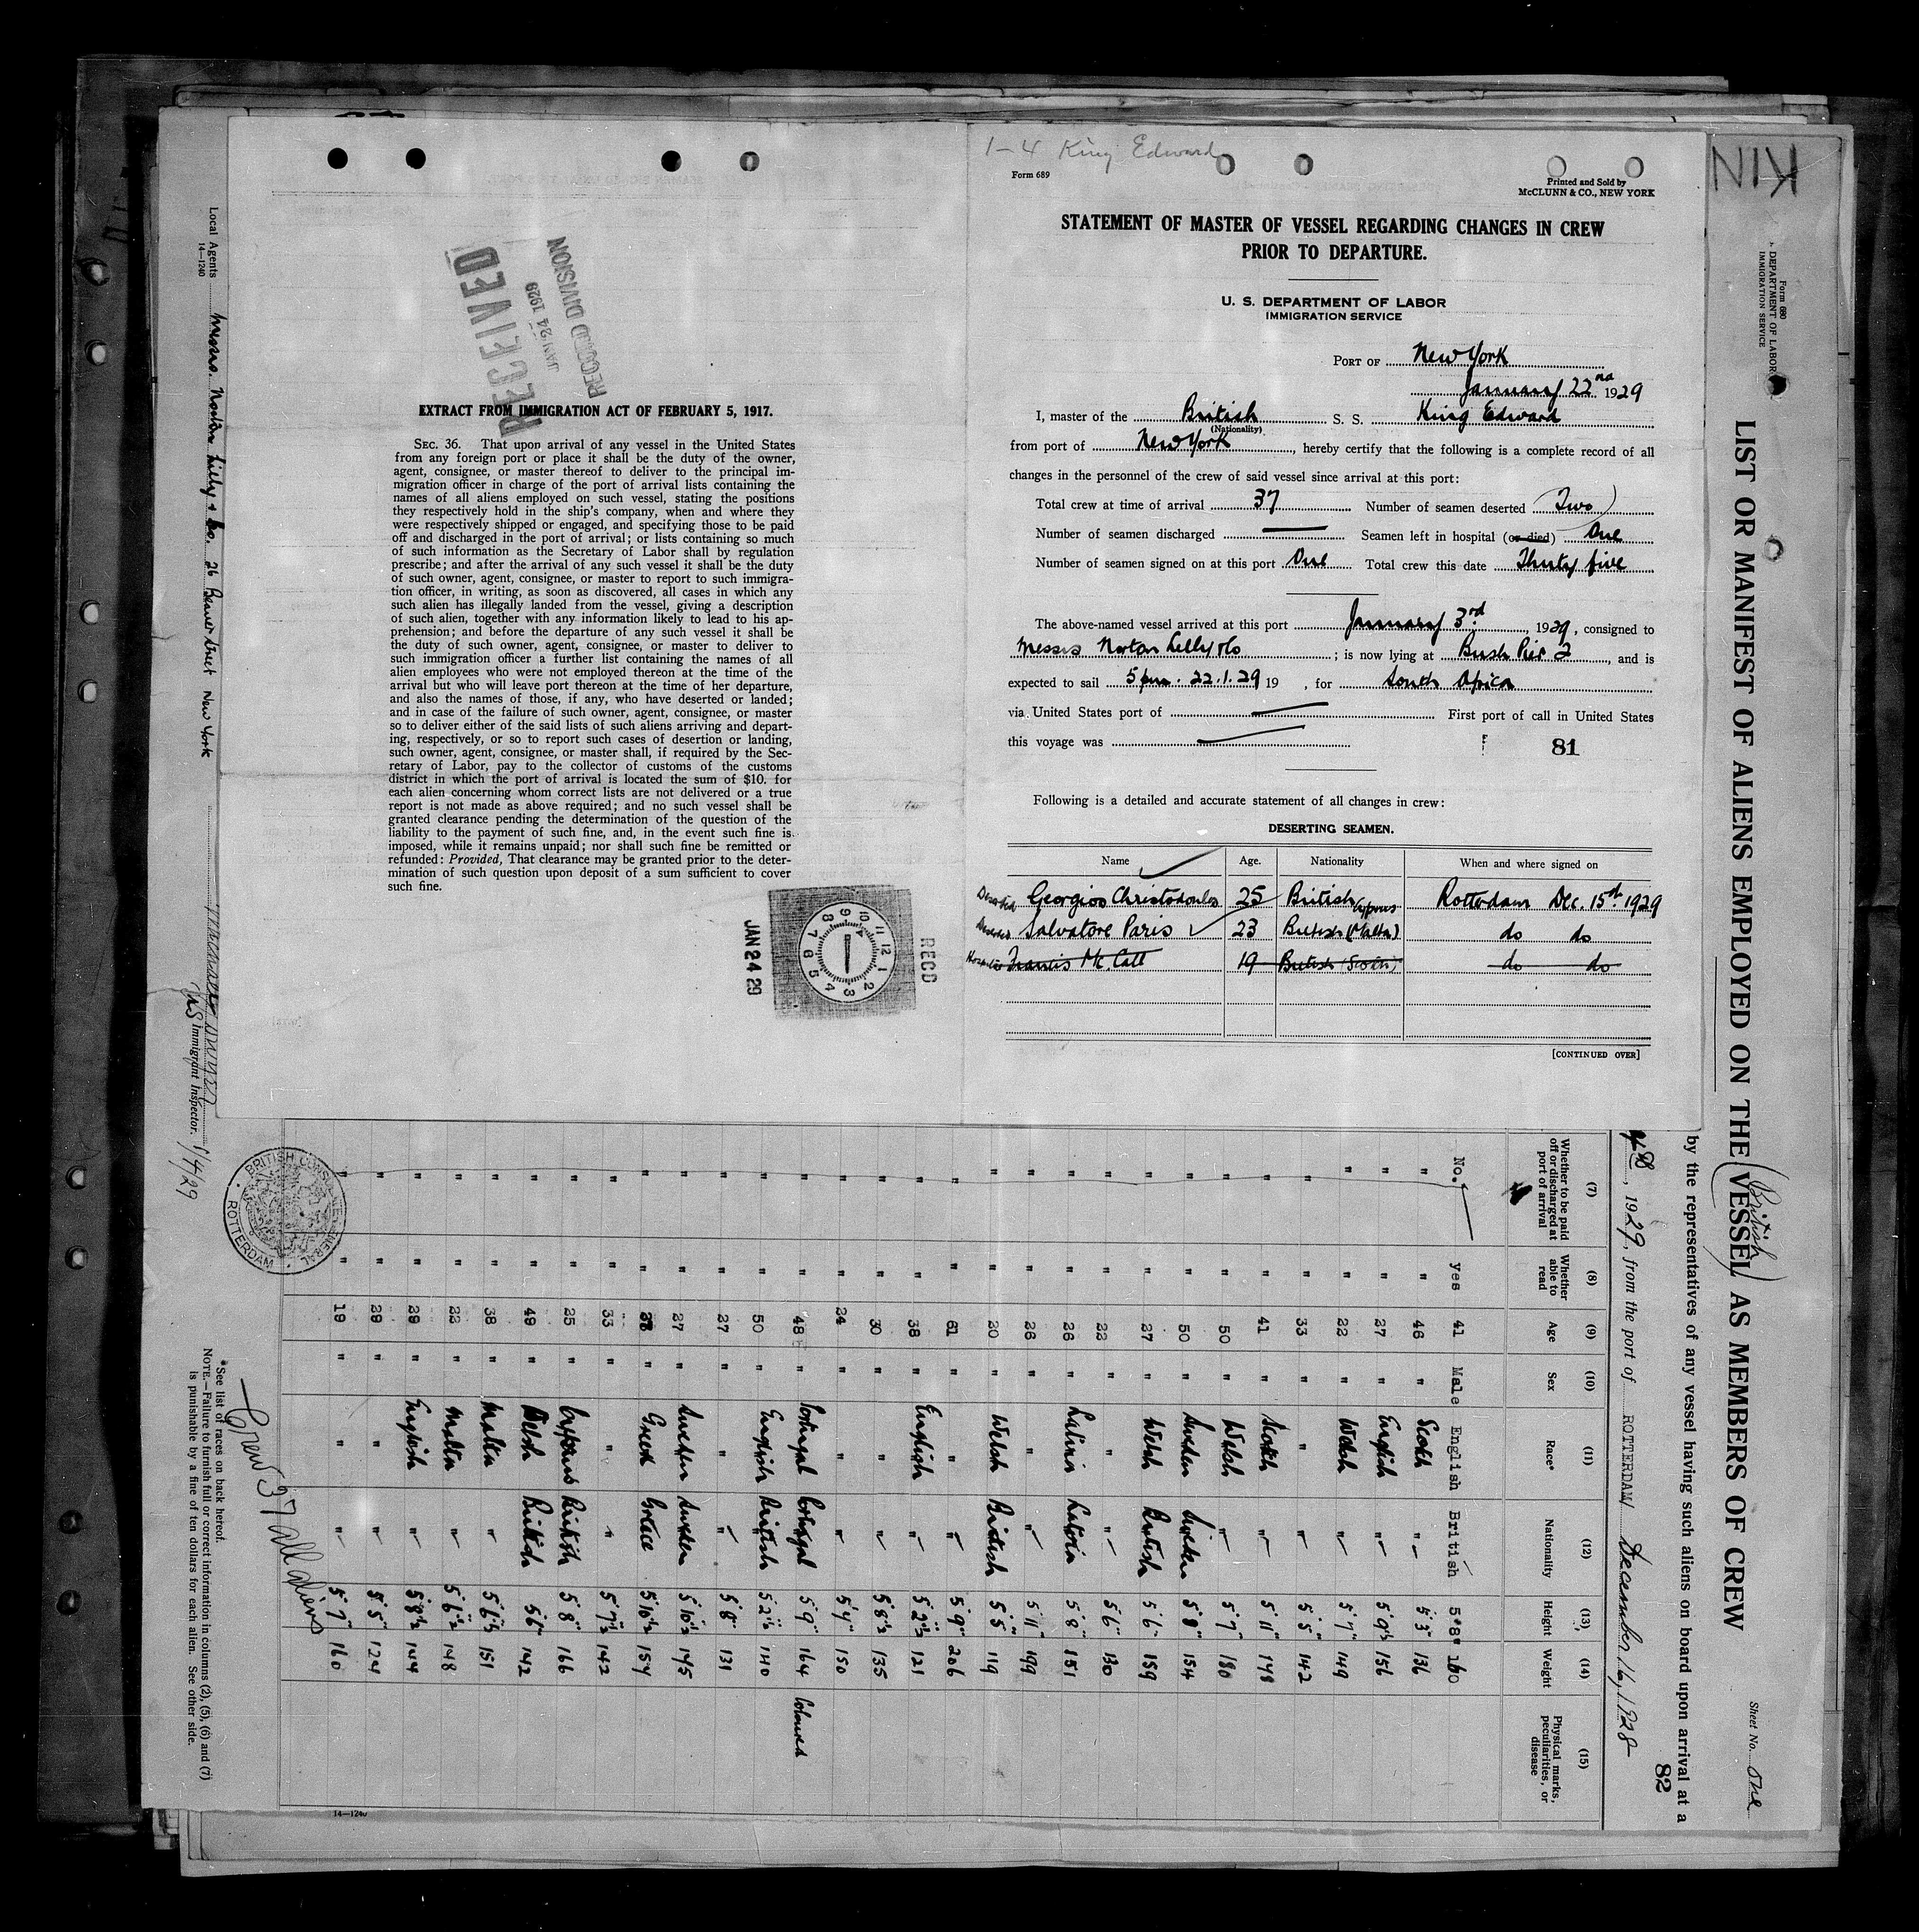 1-4 King Edward
Form 689
Printed and Sold by
McCLUNN & CO., NEW YORK
STATEMENT OF MASTER OF VESSEL REGARDING CHANGES IN CREW
PRIOR TO DEPARTURE.
U. S. DEPARTMENT OF LABOR
IMMIGRATION SERVICE
PORT OF New York
January 22nd 1929
I, master of the British S. S. King Edward
(Nationality)
from port of New York, hereby certify that the following is a complete record of all
changes in the personnel of the crew of said vessel since arrival at this port:
Total crew at time of arrival 37 Number of seamen deserted Two
Number of seamen discharged — Seamen left in hospital (or died) One
Number of seamen signed on at this port One Total crew this date Thirty five
The above-named vessel arrived at this port January 3rd, 1929, consigned to
Messrs Norton Lilly & Co; is now lying at Bush Pier 2, and is
expected to sail 5 pm. 22.1.29 19 , for South Africa
via United States port of — First port of call in United States
this voyage was —
81
Following is a detailed and accurate statement of all changes in crew:
DESERTING SEAMEN.
Name Age. Nationality When and where signed on
Deserted Georgios Christodoulos 25 British Cyprus Rotterdam Dec. 15th 1929
Deserted Salvatore Paris 23 British (Malta) do do
Hospital Francis Mc. Call 19 British (Scotch) do do
[CONTINUED OVER]
RECEIVED
JAN 24 1929
RECORD DIVISION
EXTRACT FROM IMMIGRATION ACT OF FEBRUARY 5, 1917.
SEC. 36. That upon arrival of any vessel in the United States
from any foreign port or place it shall be the duty of the owner,
agent, consignee, or master thereof to deliver to the principal im-
migration officer in charge of the port of arrival lists containing the
names of all aliens employed on such vessel, stating the positions
they respectively hold in the ship's company, when and where they
were respectively shipped or engaged, and specifying those to be paid
off and discharged in the port of arrival; or lists containing so much
of such information as the Secretary of Labor shall by regulation
prescribe; and after the arrival of any such vessel it shall be the duty
of such owner, agent, consignee, or master to report to such immigra-
tion officer, in writing, as soon as discovered, all cases in which any
such alien has illegally landed from the vessel, giving a description
of such alien, together with any information likely to lead to his ap-
prehension; and before the departure of any such vessel it shall be
the duty of such owner, agent, consignee, or master to deliver to
such immigration officer a further list containing the names of all
alien employees who were not employed thereon at the time of the
arrival but who will leave port thereon at the time of her departure,
and also the names of those, if any, who have deserted or landed;
and in case of the failure of such owner, agent, consignee, or master
so to deliver either of the said lists of such aliens arriving and depart-
ing, respectively, or so to report such cases of desertion or landing,
such owner, agent, consignee, or master shall, if required by the Sec-
retary of Labor, pay to the collector of customs of the customs
district in which the port of arrival is located the sum of $10. for
each alien concerning whom correct lists are not delivered or a true
report is not made as above required; and no such vessel shall be
granted clearance pending the determination of the question of the
liability to the payment of such fine, and, in the event such fine is
imposed, while it remains unpaid; nor shall such fine be remitted or
refunded: Provided, That clearance may be granted prior to the deter-
mination of such question upon deposit of a sum sufficient to cover
such fine.
JAN 24 29
9 10 11 12 1 2 3 4 5 6 7 8
RECD
KIN
Form 680
DEPARTMENT OF LABOR
IMMIGRATION SERVICE
Sheet No. One
LIST OR MANIFEST OF ALIENS EMPLOYED ON THE VESSEL AS MEMBERS OF CREW
British
by the representatives of any vessel having such aliens on board upon arrival at a
82
, 1929, from the port of ROTTERDAM December 16, 1928
(7) (8) (9) (10) (11) (12) (13) (14) (15)
Whether to be paid off or discharged at port of arrival Whether able to read Age Sex Race* Nationality Height Weight Physical marks, peculiarities, or disease
No. yes 41 Male English British 5'8" 160
" " 46 " Scotch " 5'3" 136
" " 27 " English " 5'9½ 156
" " 22 " Welsh " 5'7" 149
" " 33 " " " 5'5" 142
" " 41 " Scotch " 5'11" 148
" " 50 " Welsh " 5'7" 180
" " 50 " Sweden Sweden 5'8" 154
" " 27 " Welsh British 5'6" 159
" " 22 " " " 5'6" 130
" " 26 " Latvia Latvia 5'8" 151
" " 26 " " " 5'11" 199
" " 20 " Welsh British 5'5" 119
" " 61 " " " 5'9" 206
" " 38 " English " 5'2½ 121
" " 30 " " " 5'8½ 135
" " 24 " " " 5'4" 150
" " 48 " Portugal Portugal 5'9" 164 Coloured
" " 50 " English British 5'2½ 140
" " 27 " " " 5'8" 131
" " 27 " Sweden Sweden 5'10½ 145
" " " Greek Greece 5'10½ 154
" " 33 " " " 5'7½ 142
" " 25 " Cyprus British 5'8" 166
" " 49 " Welsh British 5'6" 142
" " 38 " Malta " 5'6½ 151
" " 22 " Malta " 5'6½ 148
" " 29 " English " 5'8½ 144
" " 29 " " " 5'5" 124
" " 19 " " " 5'7" 160
14—1240
BRITISH CONSULATE GENERAL
ROTTERDAM
Crew 37 all aliens
*See list of races on back hereof.
NOTE.—Failure to furnish full or correct information in columns (2), (5), (6) and (7)
is punishable by a fine of ten dollars for each alien. See other side.
Local Agents Messrs. Norton Lilly & Co. 26 Beaver Street New York
14—1240
Immigrant Inspector.
1/4/29